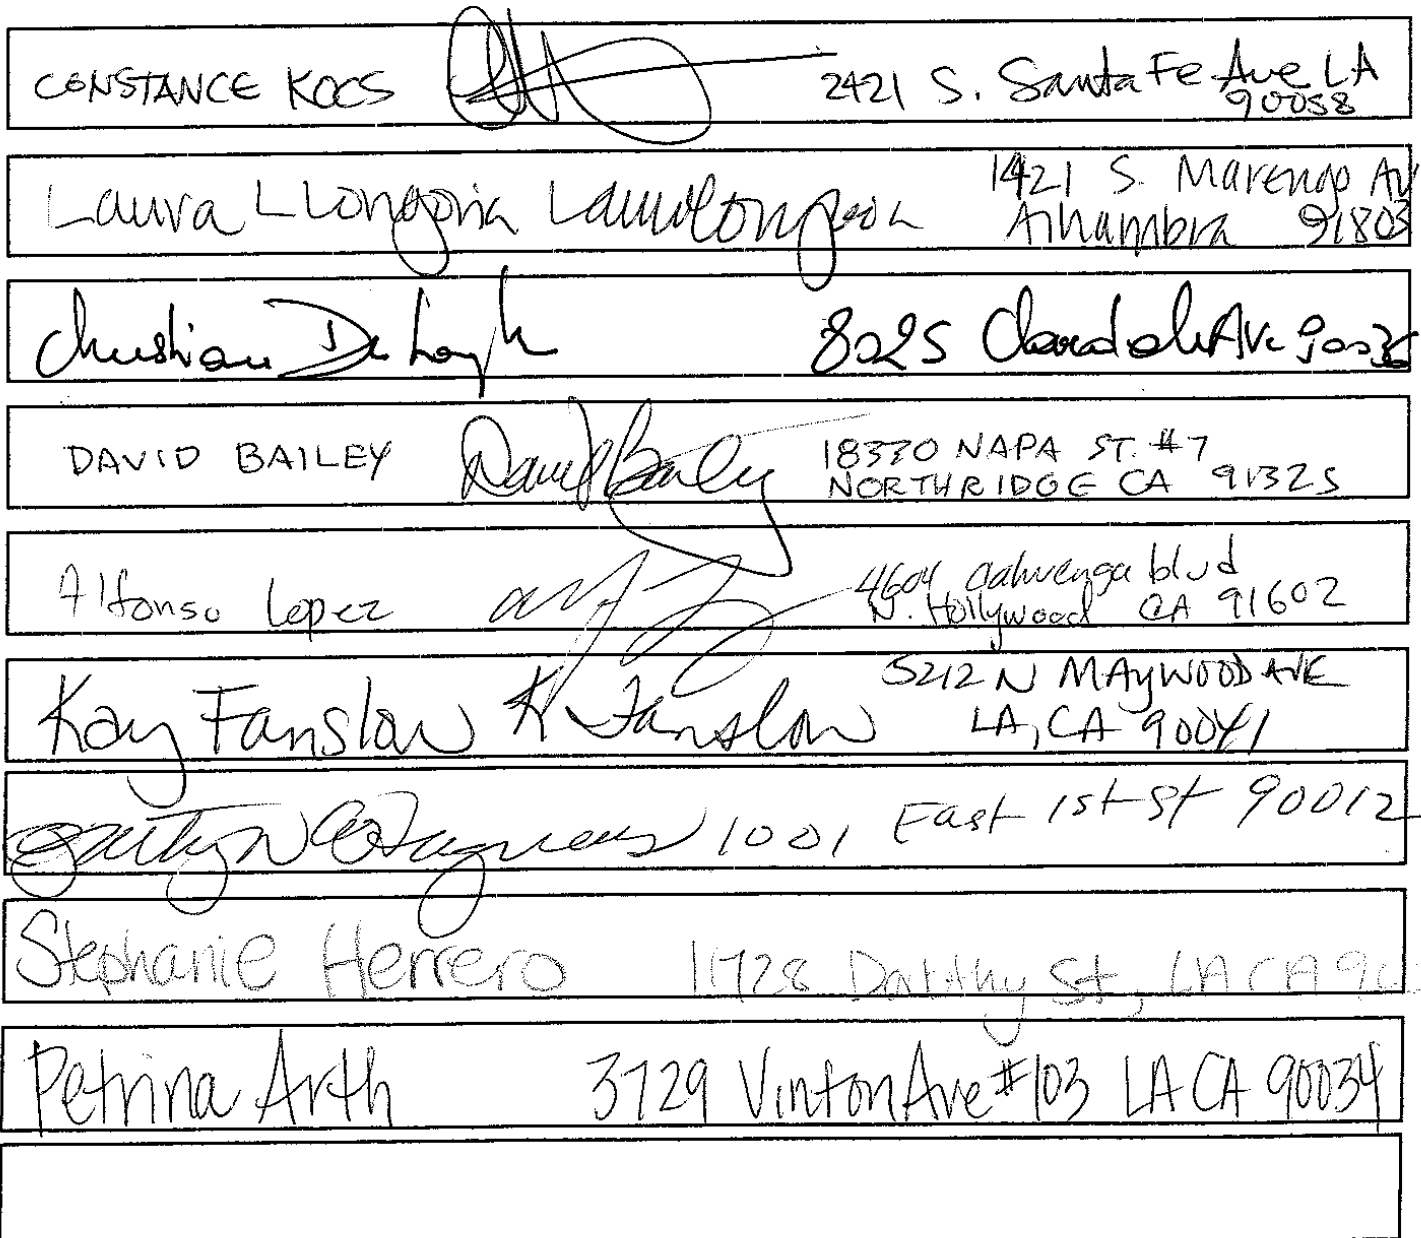 CONSTANCE KOCS 2421 S. Santa Fe Ave LA
90058
Laura L Longoria 1421 S. Marengo Av
Alhambra 91803
Christian De 8025 Ave
DAVID BAILEY David Bailey 18330 NAPA ST. #7
NORTHRIDGE CA 91325
Alfonso Lopez 4604 Cahuenga blvd
N. Hollywood CA 91602
Kay Fanslow K Fanslow 5212 N MAYWOOD AVE
LA, CA 90041
1001 East 1st St 90012
Stephanie Herrero 11728 Dorothy St, LA CA
Petrina Arth 3729 Vinton Ave #103 LA CA 90034